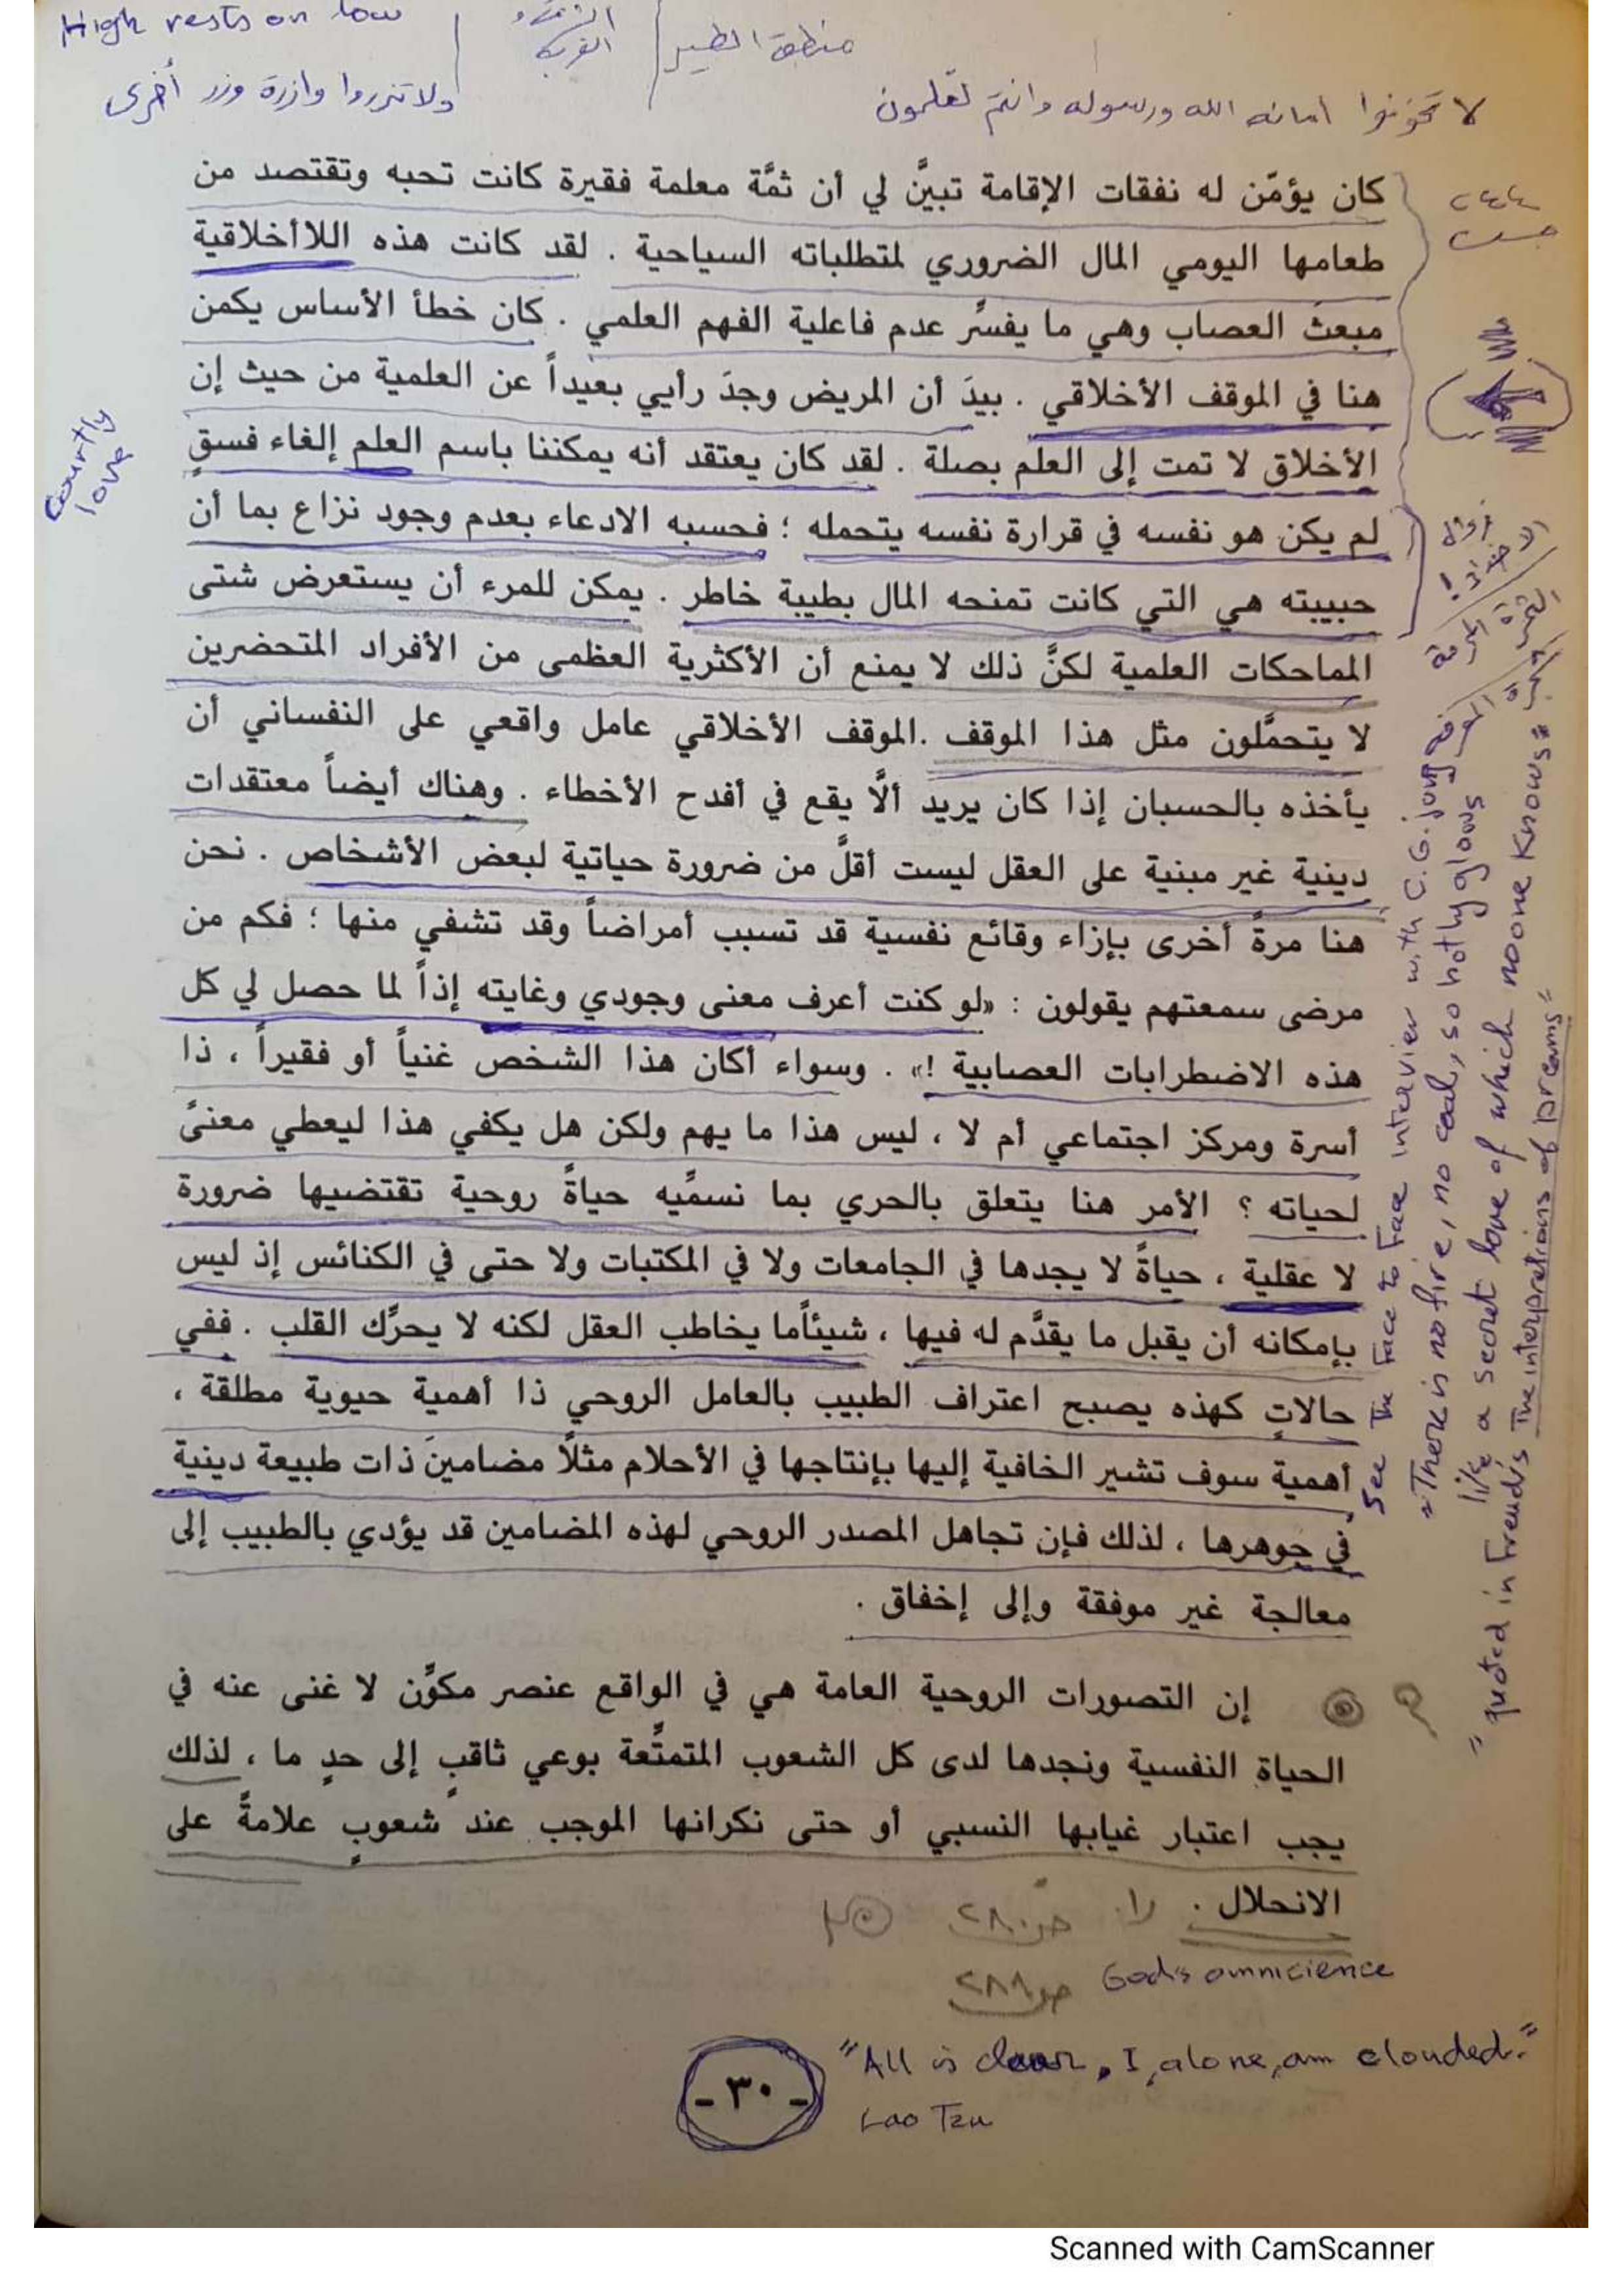 High rests on low
منطق الطير
ولا تزروا وازرة وزر أخرى
لا تخونوا امانه الله ورسوله وانتم تعلمون
كان يؤمّن له نفقات الإقامة تبيَّن لي أن ثمَّة معلمة فقيرة كانت تحبه وتقتصد من
طعامها اليومي المال الضروري لمتطلباته السياحية . لقد كانت هذه اللاأخلاقية
مبعث العصاب وهي ما يفسَّر عدم فاعلية الفهم العلمي . كان خطأ الأساس يكمن
هنا في الموقف الأخلاقي . بيدَ أن المريض وجدَ رأيي بعيداً عن العلمية من حيث إن
الأخلاق لا تمت إلى العلم بصلة . لقد كان يعتقد أنه يمكننا باسم العلم إلغاء فسقٍ
لم يكن هو نفسه في قرارة نفسه يتحمله ؛ فحسبه الادعاء بعدم وجود نزاع بما أن
حبيبته هي التي كانت تمنحه المال بطيبة خاطر . يمكن للمرء أن يستعرض شتى
المماحكات العلمية لكنَّ ذلك لا يمنع أن الأكثرية العظمى من الأفراد المتحضرين
لا يتحمَّلون مثل هذا الموقف .الموقف الأخلاقي عامل واقعي على النفساني أن
يأخذه بالحسبان إذا كان يريد ألَّا يقع في أفدح الأخطاء . وهناك أيضاً معتقدات
دينية غير مبنية على العقل ليست أقلَّ من ضرورة حياتية لبعض الأشخاص . نحن
هنا مرةً أخرى بإزاء وقائع نفسية قد تسبب أمراضاً وقد تشفي منها ؛ فكم من
مرضى سمعتهم يقولون : «لو كنت أعرف معنى وجودي وغايته إذاً لما حصل لي كل
هذه الاضطرابات العصابية !» . وسواء أكان هذا الشخص غنياً أو فقيراً ، ذا
أسرة ومركز اجتماعي أم لا ، ليس هذا ما يهم ولكن هل يكفي هذا ليعطي معنىً
لحياته ؟ الأمر هنا يتعلق بالحري بما نسمَّيه حياةً روحية تقتضيها ضرورة
لا عقلية ، حياةً لا يجدها في الجامعات ولا في المكتبات ولا حتى في الكنائس إذ ليس
بإمكانه أن يقبل ما يقدَّم له فيها ، شيئاًما يخاطب العقل لكنه لا يحرَّك القلب . ففي
حالاتٍ كهذه يصبح اعتراف الطبيب بالعامل الروحي ذا أهمية حيوية مطلقة ،
أهمية سوف تشير الخافية إليها بإنتاجها في الأحلام مثلًا مضامينَ ذات طبيعة دينية
في جوهرها ، لذلك فإن تجاهل المصدر الروحي لهذه المضامين قد يؤدي بالطبيب إلى
معالجة غير موفقة وإلى إخفاق .
إن التصورات الروحية العامة هي في الواقع عنصر مكوِّن لا غنى عنه في
الحياة النفسية ونجدها لدى كل الشعوب المتمتَّعة بوعي ثاقبٍ إلى حدٍ ما ، لذلك
يجب اعتبار غيابها النسبي أو حتى نكرانها الموجب عند شعوبٍ علامةً على
الانحلال .
ص ٢٨٠
ص ٢٨٨
God's omnicience
"All is clear, I, alone, am clouded."
Lao Tzu
- ٣٠ -
Courtly
love
See The Face to Face interview with C.G. jung
"There is no fire, no coal, so hotly glows
like a secret love of which noone knows"
"quoted in Freud's The interpretions of Dreams"
Scanned with CamScanner